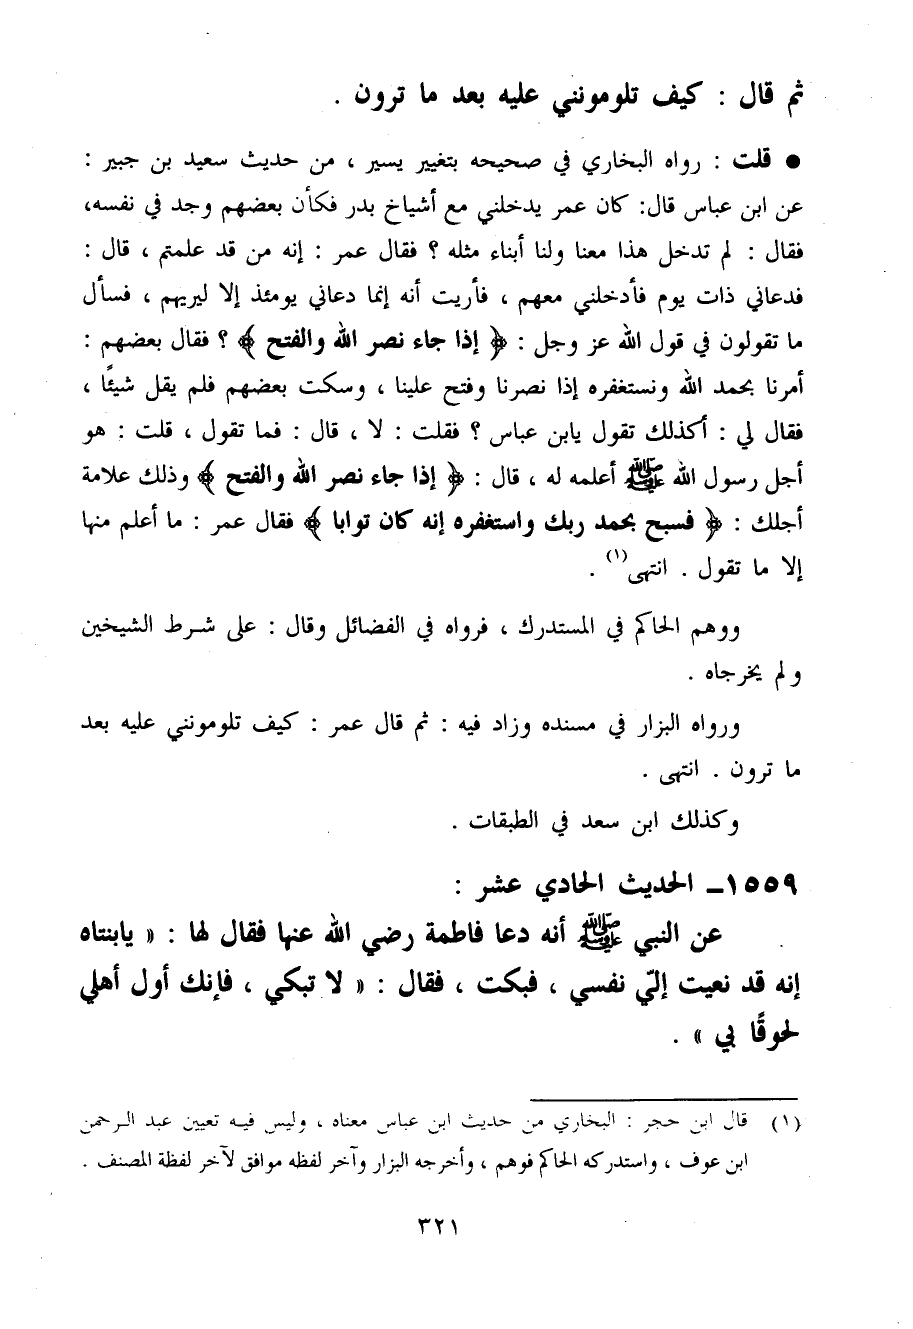 ثم قال : كيف تلومونني عليه بعد ما ترون .
● قلت : رواه البخاري في صحيحه بتغيير يسير ، من حديث سعيد بن جبير :
عن ابن عباس قال: كان عمر يدخلني مع أشياخ بدر فكأن بعضهم وجد في نفسه،
فقال : لم تدخل هذا معنا ولنا أبناء مثله ؟ فقال عمر : إنه من قد علمتم ، قال :
فدعاني ذات يوم فأدخلني معهم ، فأريت أنه إنما دعاني يومئذ إلا ليريهم ، فسأل
ما تقولون في قول الله عز وجل : ﴿ إذا جاء نصر الله والفتح ﴾ ؟ فقال بعضهم :
أمرنا بحمد الله ونستغفره إذا نصرنا وفتح علينا ، وسكت بعضهم فلم يقل شيئًا ،
فقال لي : أكذلك تقول يابن عباس ؟ فقلت : لا ، قال : فما تقول ، قلت : هو
أجل رسول الله ﷺ أعلمه له ، قال : ﴿ إذا جاء نصر الله والفتح ﴾ وذلك علامة
أجلك : ﴿ فسبح بحمد ربك واستغفره إنه كان توابا ﴾ فقال عمر : ما أعلم منها
إلا ما تقول . انتهى(١) .
ووهم الحاكم في المستدرك ، فرواه في الفضائل وقال : على شرط الشيخين
ولم يخرجاه .
ورواه البزار في مسنده وزاد فيه : ثم قال عمر : كيف تلومونني عليه بعد
ما ترون . انتهى .
وكذلك ابن سعد في الطبقات .
١٥٥٩ـ الحديث الحادي عشر :
عن النبي ﷺ أنه دعا فاطمة رضي الله عنها فقال لها : « يابنتاه
إنه قد نعيت إليّ نفسي ، فبكت ، فقال : « لا تبكي ، فإنك أول أهلي
لحوقًا بي » .
(١) قال ابن حجر : البخاري من حديث ابن عباس معناه ، وليس فيه تعيين عبد الرحمن
ابن عوف ، واستدركه الحاكم فوهم ، وأخرجه البزار وآخر لفظه موافق لآخر لفظة المصنف .
٣٢١